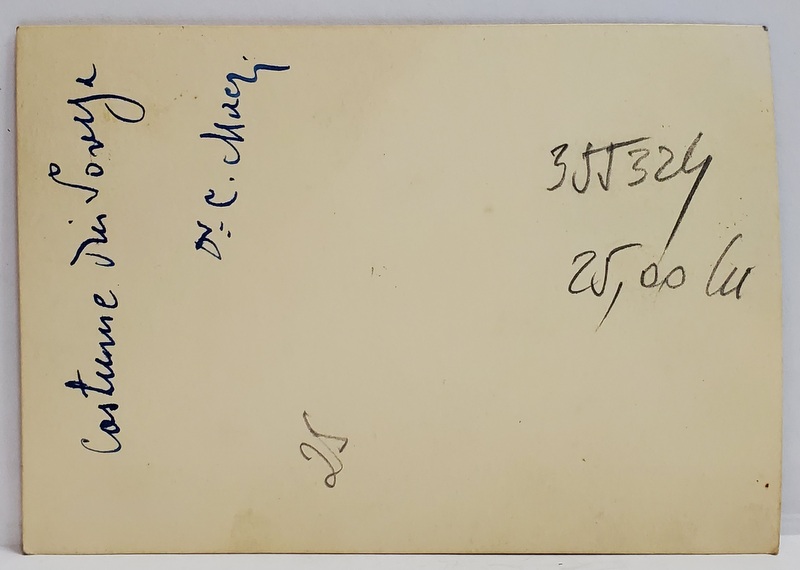 Costume din Soveja
Dr. C. Mac
355324
25,00 lei
25